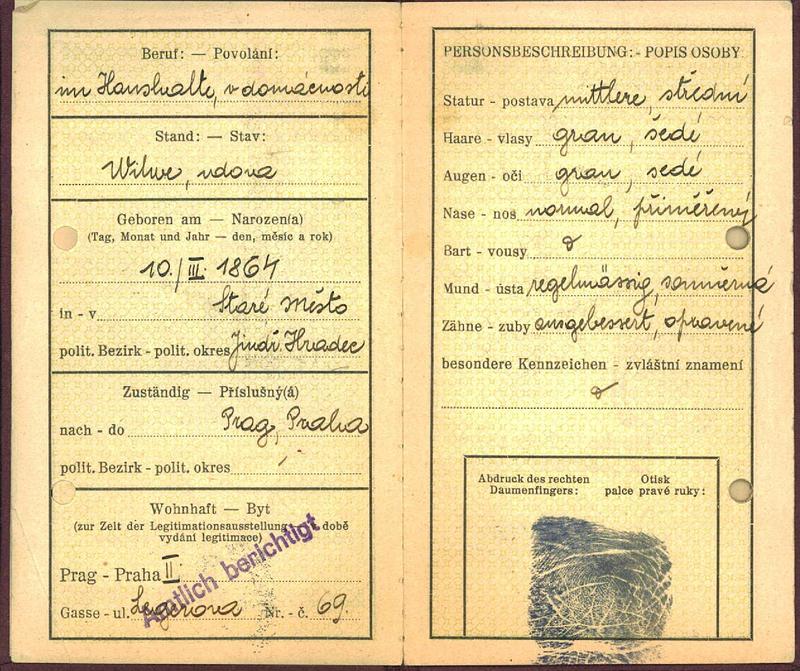 Beruf: — Povolání:
im Haushalte, v domácnosti
Stand: — Stav:
Witwe, vdova
Geboren am — Narozen(a)
(Tag, Monat und Jahr — den, měsíc a rok)
10./III. 1864
in - v Staré Město
polit. Bezirk - polit. okres Jindř. Hradec
Zuständig — Příslušný(á)
nach - do Prag, Praha
polit. Bezirk - polit. okres
Wohnhaft — Byt
(zur Zeit der Legitimationsausstellung době
vydání legitimace)
Amtlich berichtigt
Prag - Praha II
Gasse - ul. Legerova Nr. - č. 69.
PERSONSBESCHREIBUNG: - POPIS OSOBY:
Statur - postava mittlere, střední
Haare - vlasy grau, šedé
Augen - oči grau, šedé
Nase - nos normal, přiměřený
Bart - vousy
Mund - ústa regelmässig, souměrná
Zähne - zuby ausgebessert, opravené
besondere Kennzeichen - zvláštní znamení
Abdruck des rechten Daumenfingers:
Otisk palce pravé ruky: